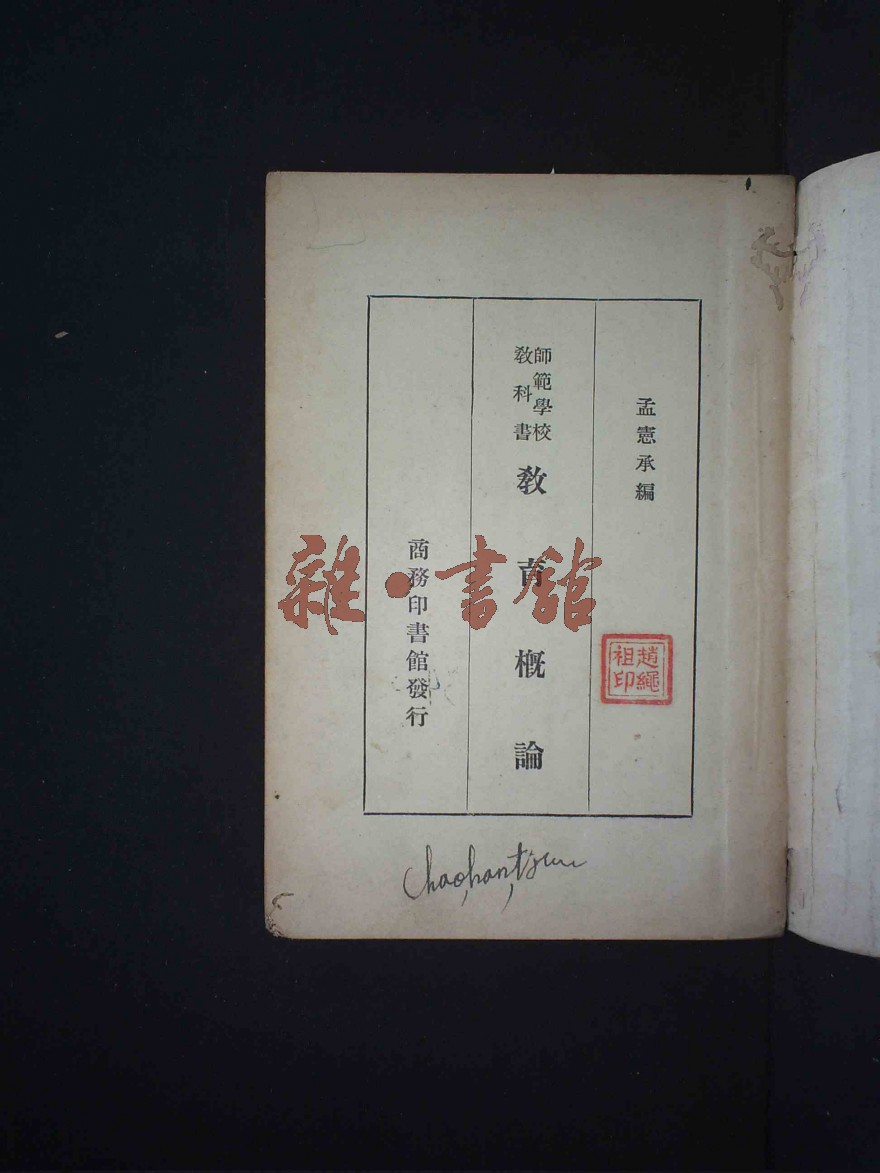 孟憲承編
師範學校
教科書
教育概論
商務印書館發行
趙繩
祖印
雜·書館